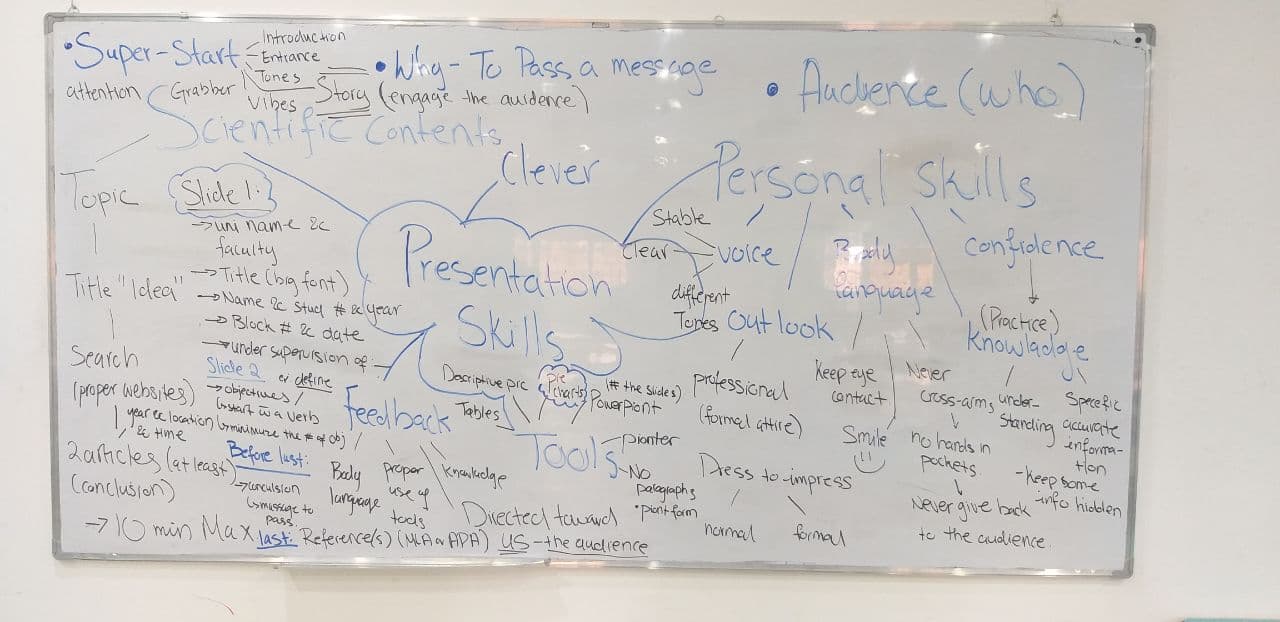 • Super-Start
Introduction
Entrance
Tones
Vibes
Story
attention Grabber
• Why - To Pass a message
(engage the auidence)
• Audience (who)
Scientific Contents
Topic
Title "Idea"
Search
(proper websites)
year & location
& time
2 articles (at least)
(conclusion)
→ 10 min Max
Slide 1:
→ uni name &
faculty
→ Title (big font)
→ Name & stud # & year
→ Block # & date
→ under supervision of -
Slide 2 or define
→ objectives /
↳ start w a verb
↳ minimize the # of obj
Before last:
→ conculsion
↳ message to
pass
last: Reference(s) (MLA or APA)
Clever
Presentation
Skills
Feedback
Body
language
proper
use of
tools
knowledge
Directed toward
US - the audience
Tools
Descriptive pic
Tables
pie
charts
(# the slides)
Powerpiont
pionter
No
paragraphs
• piont form
Personal Skills
voice
Stable
clear
different
Tones
Outlook
professional
(formal attire)
Dress to impress
normal
formal
Body
language
Keep eye
contact
Smile
Never
cross-arms
no hands in
pockets
Never give back
to the audience.
confidence
(Practice)
Knowladge
under-
standing
Specefic
accurate
informa-
tion
- keep some
info hidden